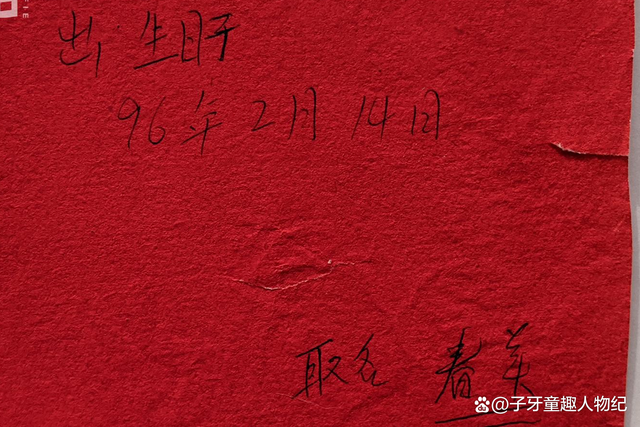 出生日于
'96年2月14日
取名 春英
@子牙童趣人物纪